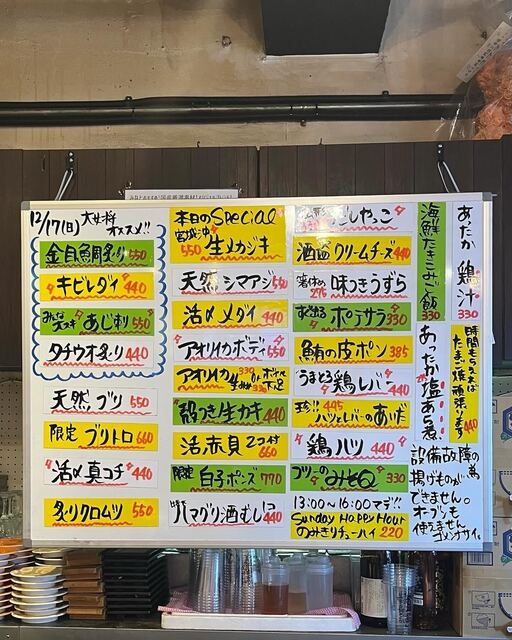 12/17(日) 大将 オススメ!!
金目鯛炙り 550
キビレダイ 440
みんな大スキ あじ刺 550
タチウオ炙り 440
天然ブリ 550
限定 ブリトロ 660
活〆真コチ 440
炙りクロムツ 550
本日のSpecial
宮城沖
550 生メカジキ
天然シマアジ 550
活〆メダイ 440
アオリイカボディ 550
アオリイカゲソ 330
生 330
殻つき生カキ 440
活赤貝2コ付 660
限定 白子ポンズ 770
ハマグリ酒むし 440
だしやっこ
酒盗クリームチーズ 440
箸休め 275 味つきうずら
すぐ出る ポテサラ 330
鮪の皮ポン 385
うまとろ鶏レバー 440
珍!! 495 ハツとレバーのあいだ
鶏ハツ 440
ブリーのみそQ 330
13:00〜16:00マデ!!
Sunday Happy Hour
のみきりチューハイ 220
海鮮たきこみご飯 330
あったか 鶏汁 330
あったか塩あら煮
時間もらえれば
たまご焼頑張ります 440
設備故障の為
揚げものが
できません。
オーブンも
使えません
ゴメンナサイ。